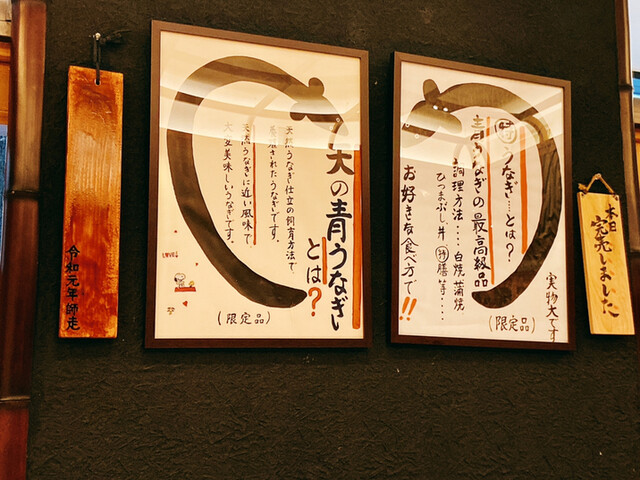 令和元年師走
天の青うなぎ
とは?
天然うなぎ仕立の飼育方法で
養殖されたうなぎです。
天然うなぎに近い風味で
大変美味しいうなぎです。
(限定品)
特うなぎ…とは?
青うなぎの最高級品
調理方法‥‥白焼 蒲焼
ひつまぶし、丼 特膳 等‥‥
お好きな食べ方で!!
(限定品)
実物大です
本日
完売しました